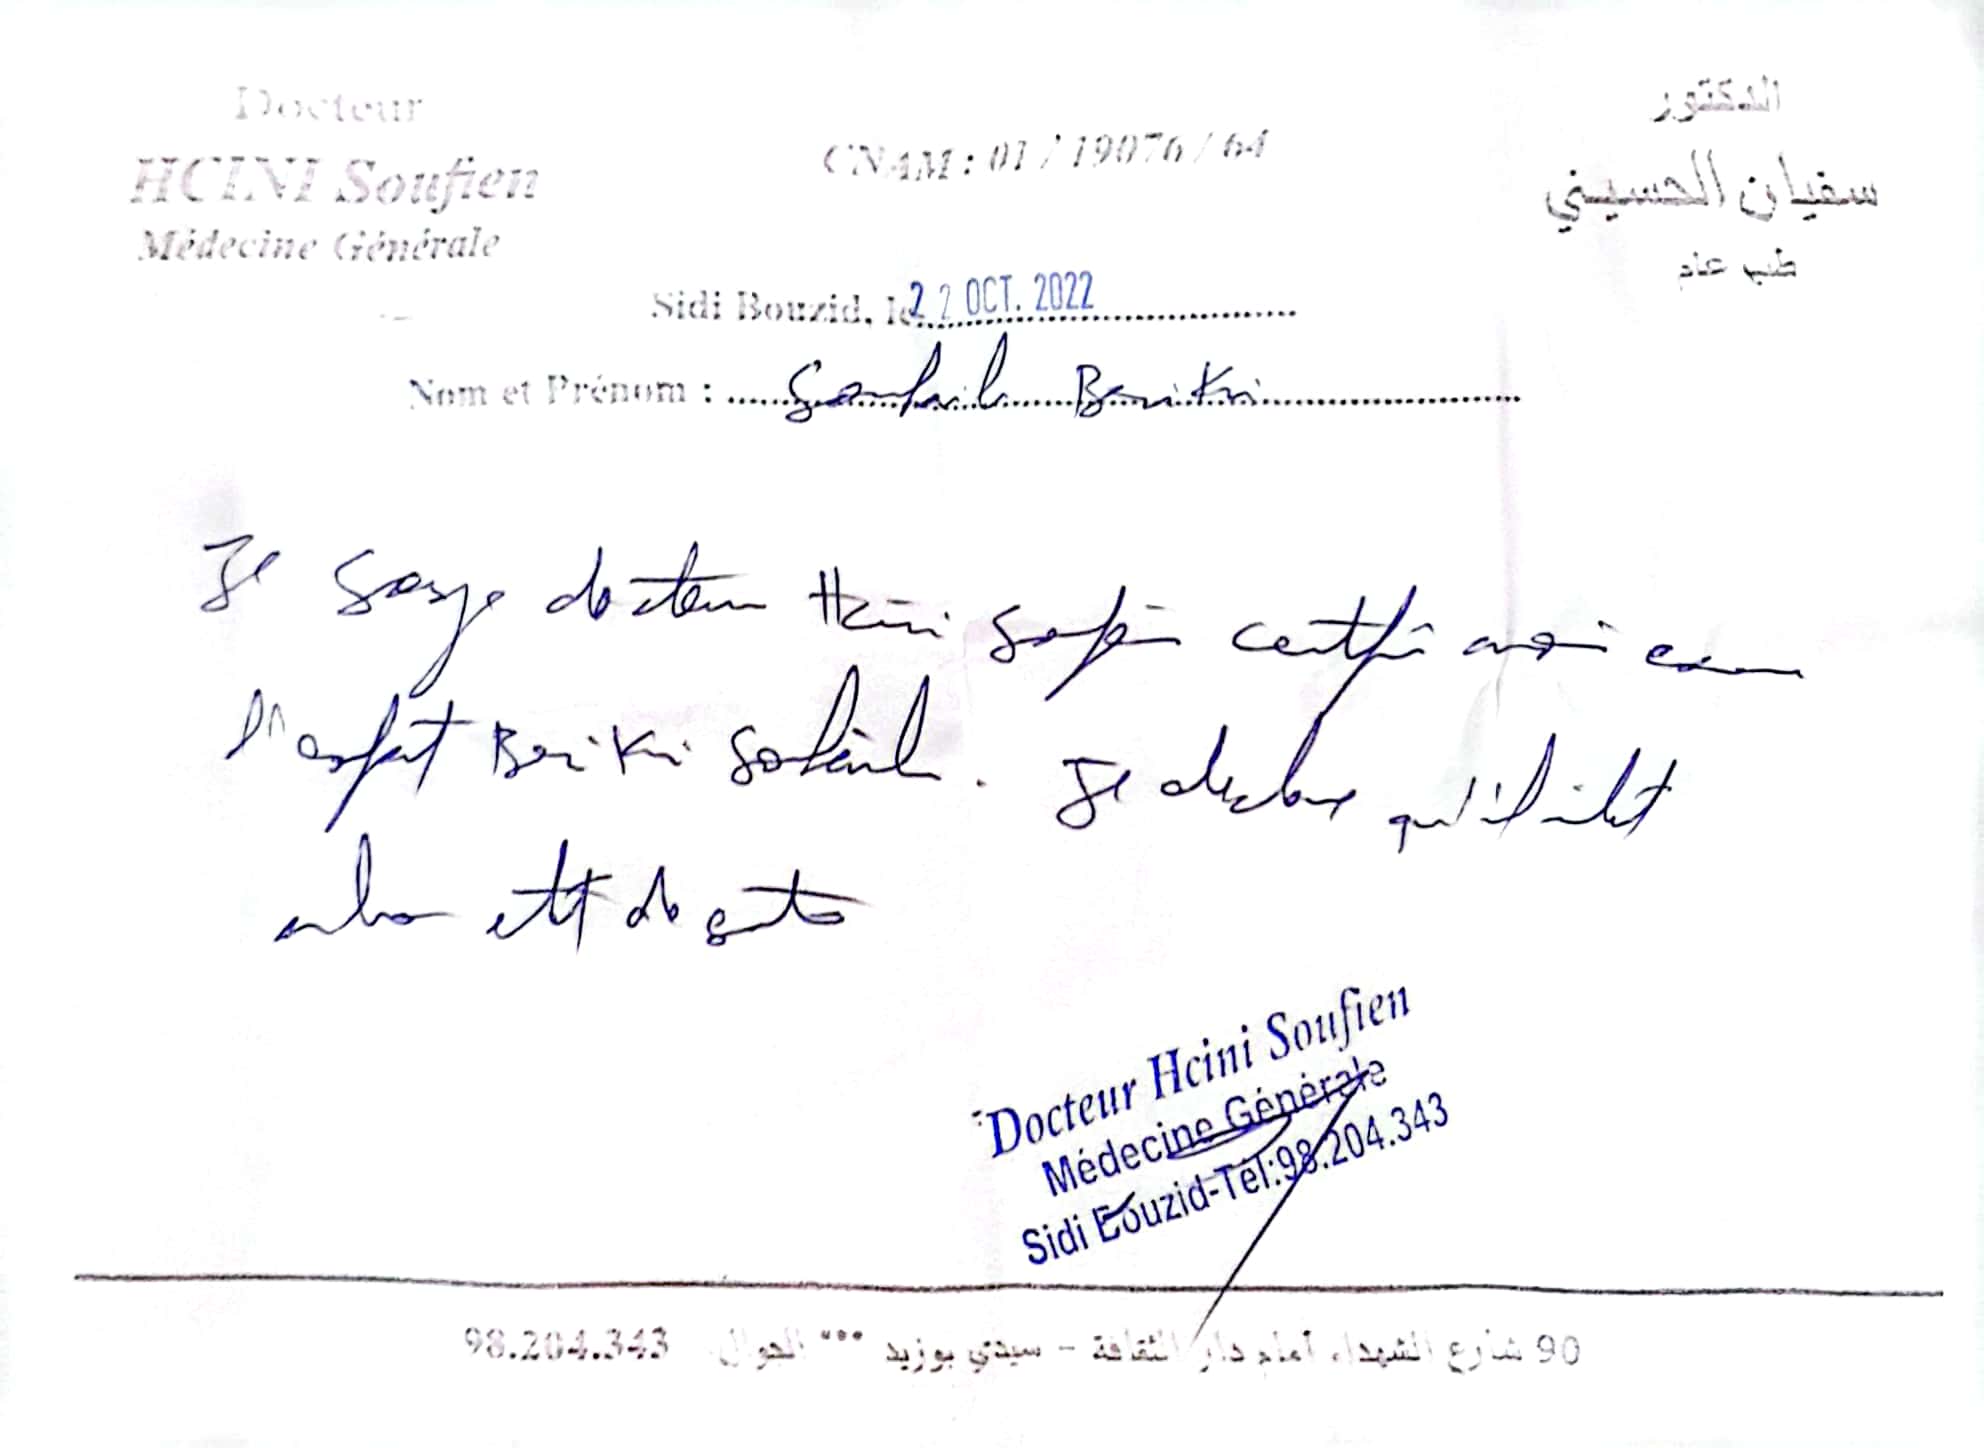 Docteur
HCINI Soufien
Médecine Générale
CNAM : 01 / 19076 / 64
الدكتور
سفيان الحسيني
طب عام
Sidi Bouzid, le 22 OCT. 2022
Nom et Prénom : Souhail Briki
Je docteur Hcini Sofien certifie avoir
l'enfant Briki Souhail. Je déclare qu'il
de
Docteur Hcini Soufien
Médecine Générale
Sidi Bouzid-Tél:98.204.343
90 شارع الشهداء أمام دار الثقافة - سيدي بوزيد *** الجوال 98.204.343